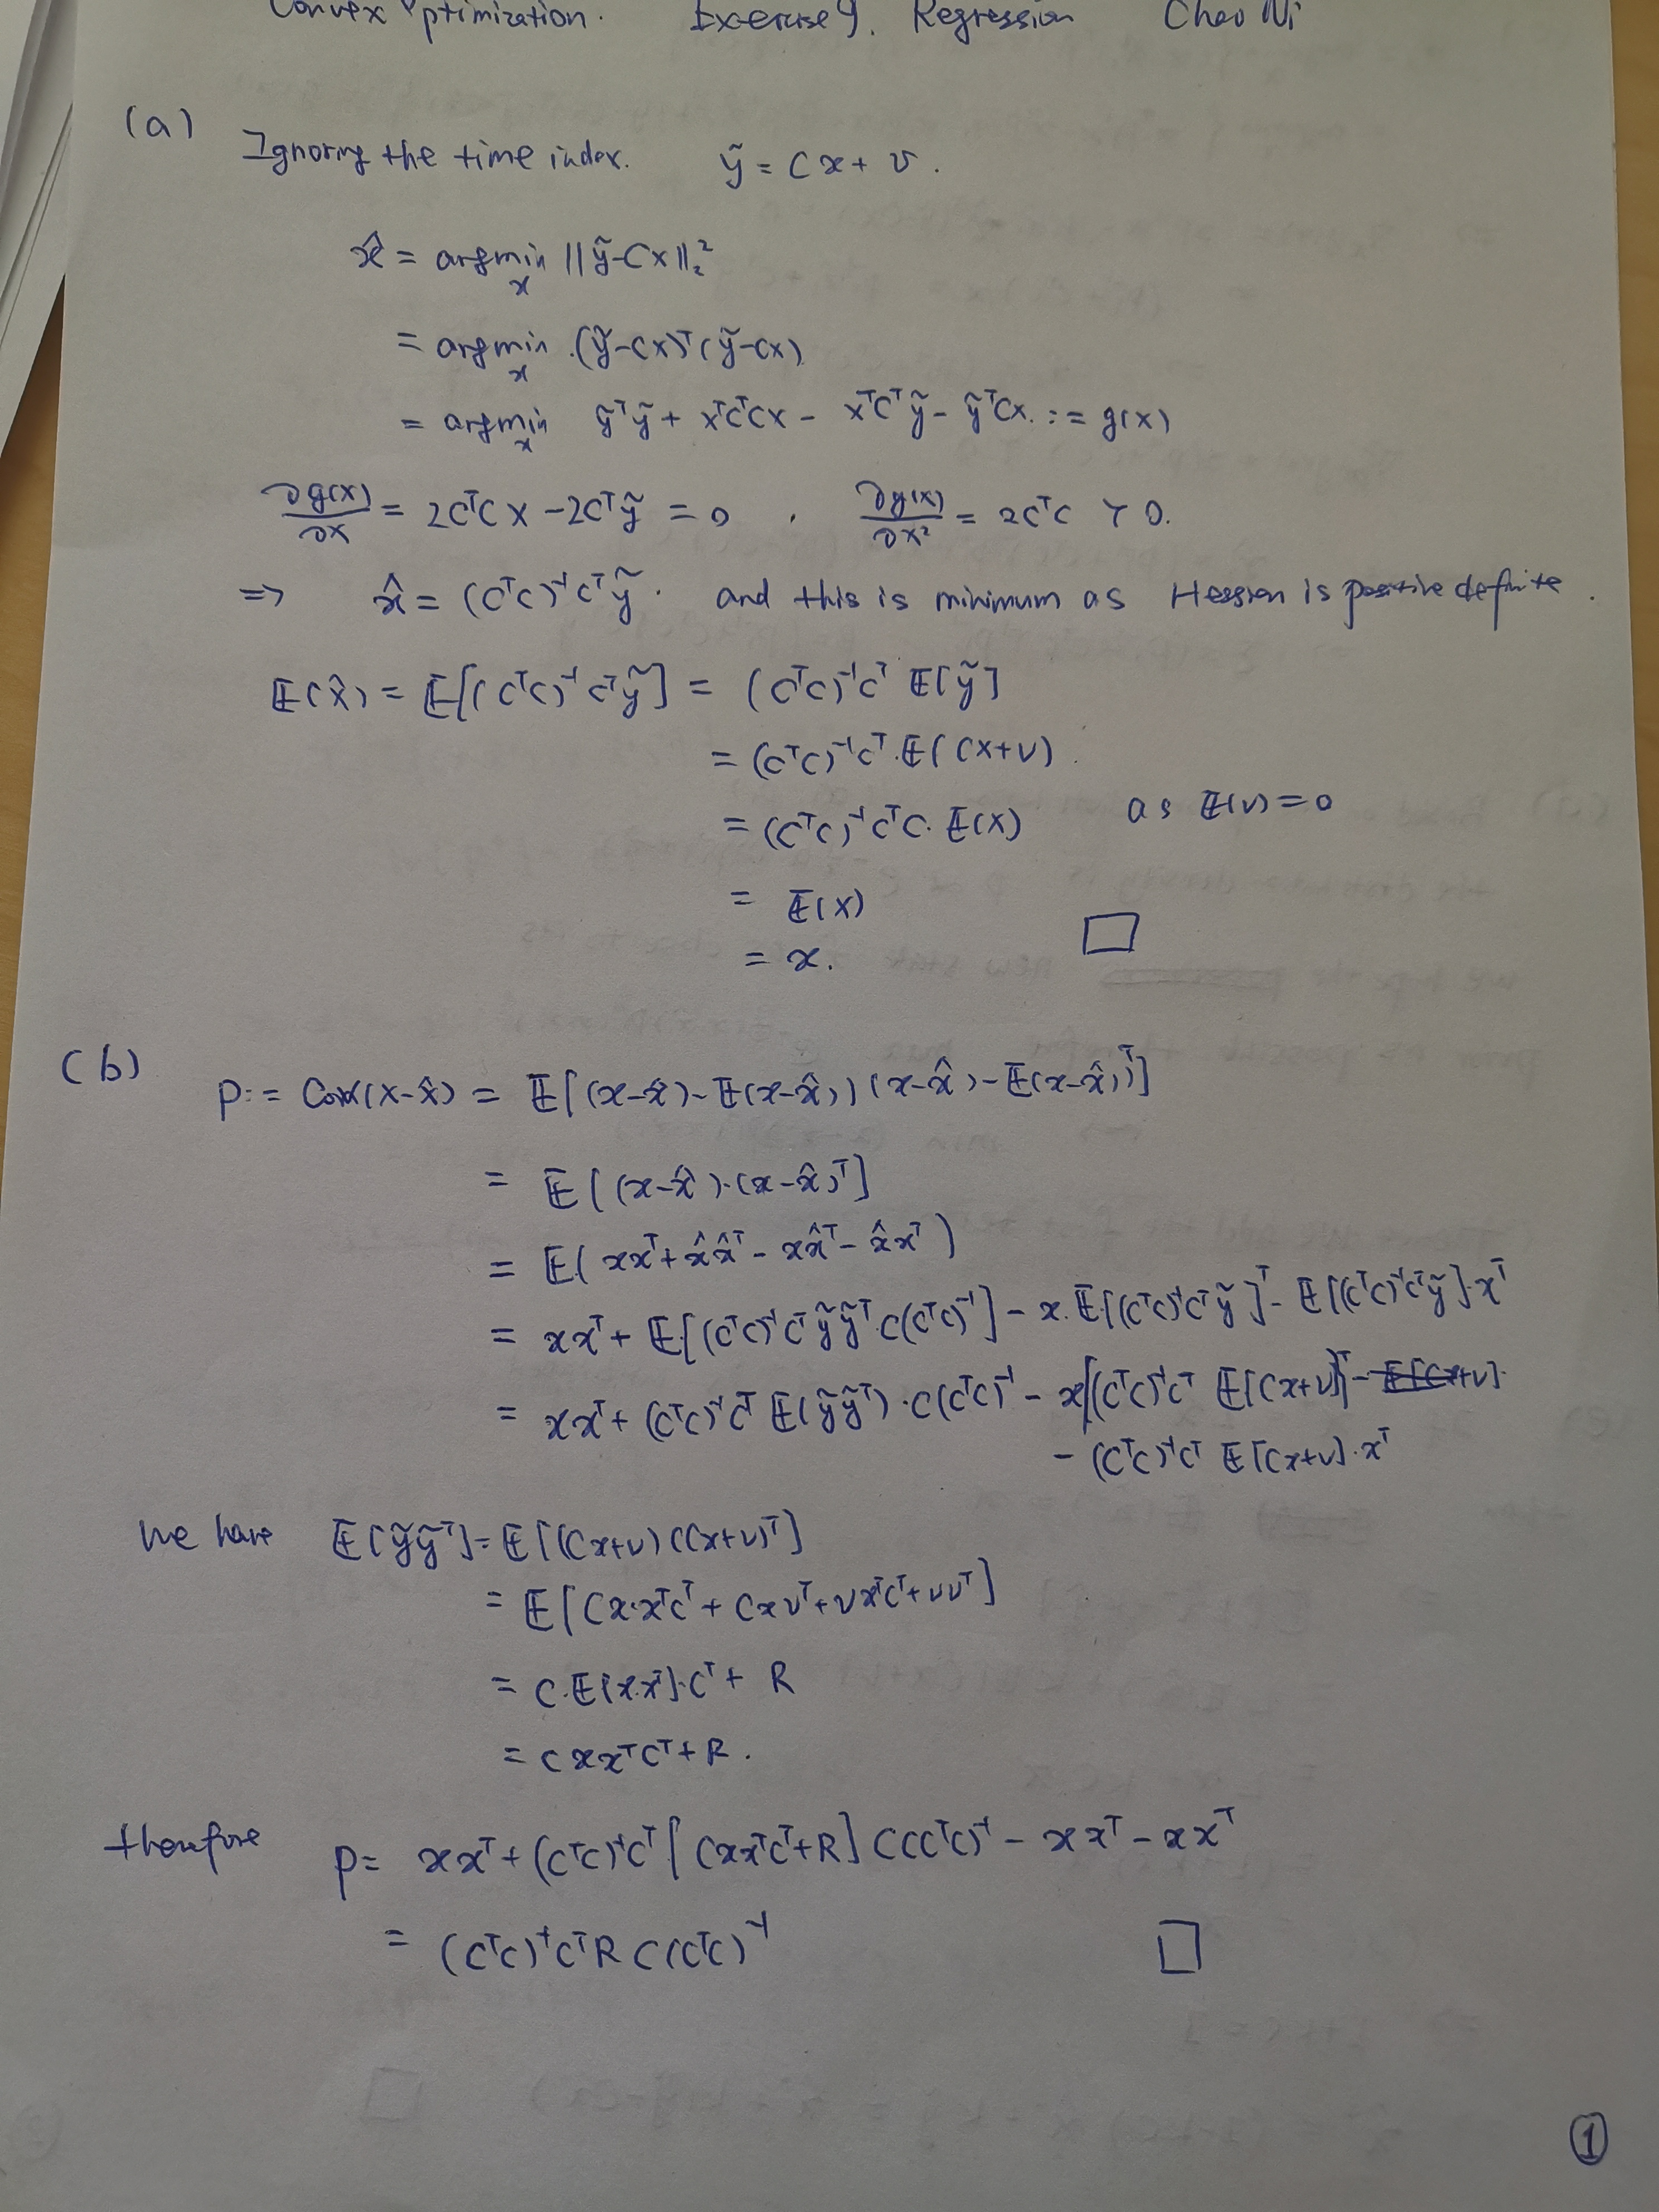 Convex Optimization. Exercise 9. Regression Chao Ni
(a) Ignoring the time index. ỹ = Cx + v.
x̂ = argmin_x ||ỹ-Cx||₂²
= argmin_x (ỹ-Cx)ᵀ(ỹ-Cx)
= argmin_x ỹᵀỹ + xᵀCᵀCx - xᵀCᵀỹ - ỹᵀCx. := g(x)
∂g(x)/∂x = 2CᵀCx - 2Cᵀỹ = 0 , ∂g(x)/∂x² = 2CᵀC ≻ 0.
=> x̂ = (CᵀC)⁻¹Cᵀỹ. and this is minimum as Hession is positive definite.
𝔼(x̂) = 𝔼[(CᵀC)⁻¹Cᵀỹ] = (CᵀC)⁻¹Cᵀ 𝔼[ỹ]
= (CᵀC)⁻¹Cᵀ.𝔼(Cx+v).
= (CᵀC)⁻¹CᵀC. 𝔼(x) as 𝔼(v)=0
= 𝔼(x)
= x. □
(b) P := Cov(x-x̂) = 𝔼[((x-x̂)-𝔼(x-x̂))((x-x̂)-𝔼(x-x̂))ᵀ]
= 𝔼[(x-x̂)·(x-x̂)ᵀ]
= 𝔼(xxᵀ + x̂x̂ᵀ - xx̂ᵀ - x̂xᵀ)
= xxᵀ + 𝔼[(CᵀC)⁻¹Cᵀỹỹᵀ·C(CᵀC)⁻¹] - x.𝔼[(CᵀC)⁻¹Cᵀỹ]ᵀ - 𝔼[(CᵀC)⁻¹Cᵀỹ]·xᵀ
= xxᵀ + (CᵀC)⁻¹Cᵀ 𝔼(ỹỹᵀ)·C(CᵀC)⁻¹ - x[(CᵀC)⁻¹Cᵀ 𝔼[Cx+v]]ᵀ - 𝔼[Cx+v].
- (CᵀC)⁻¹Cᵀ 𝔼[Cx+v]·xᵀ
We have 𝔼[ỹỹᵀ] = 𝔼[(Cx+v)(Cx+v)ᵀ]
= 𝔼[Cx·xᵀCᵀ + Cxvᵀ + vxᵀCᵀ + vvᵀ]
= C·𝔼[x·xᵀ]·Cᵀ + R
= CxxᵀCᵀ + R.
therefore P = xxᵀ + (CᵀC)⁻¹Cᵀ[CxxᵀCᵀ+R]C(CᵀC)⁻¹ - xxᵀ - xxᵀ
= (CᵀC)⁻¹CᵀRC(CᵀC)⁻¹ □
①